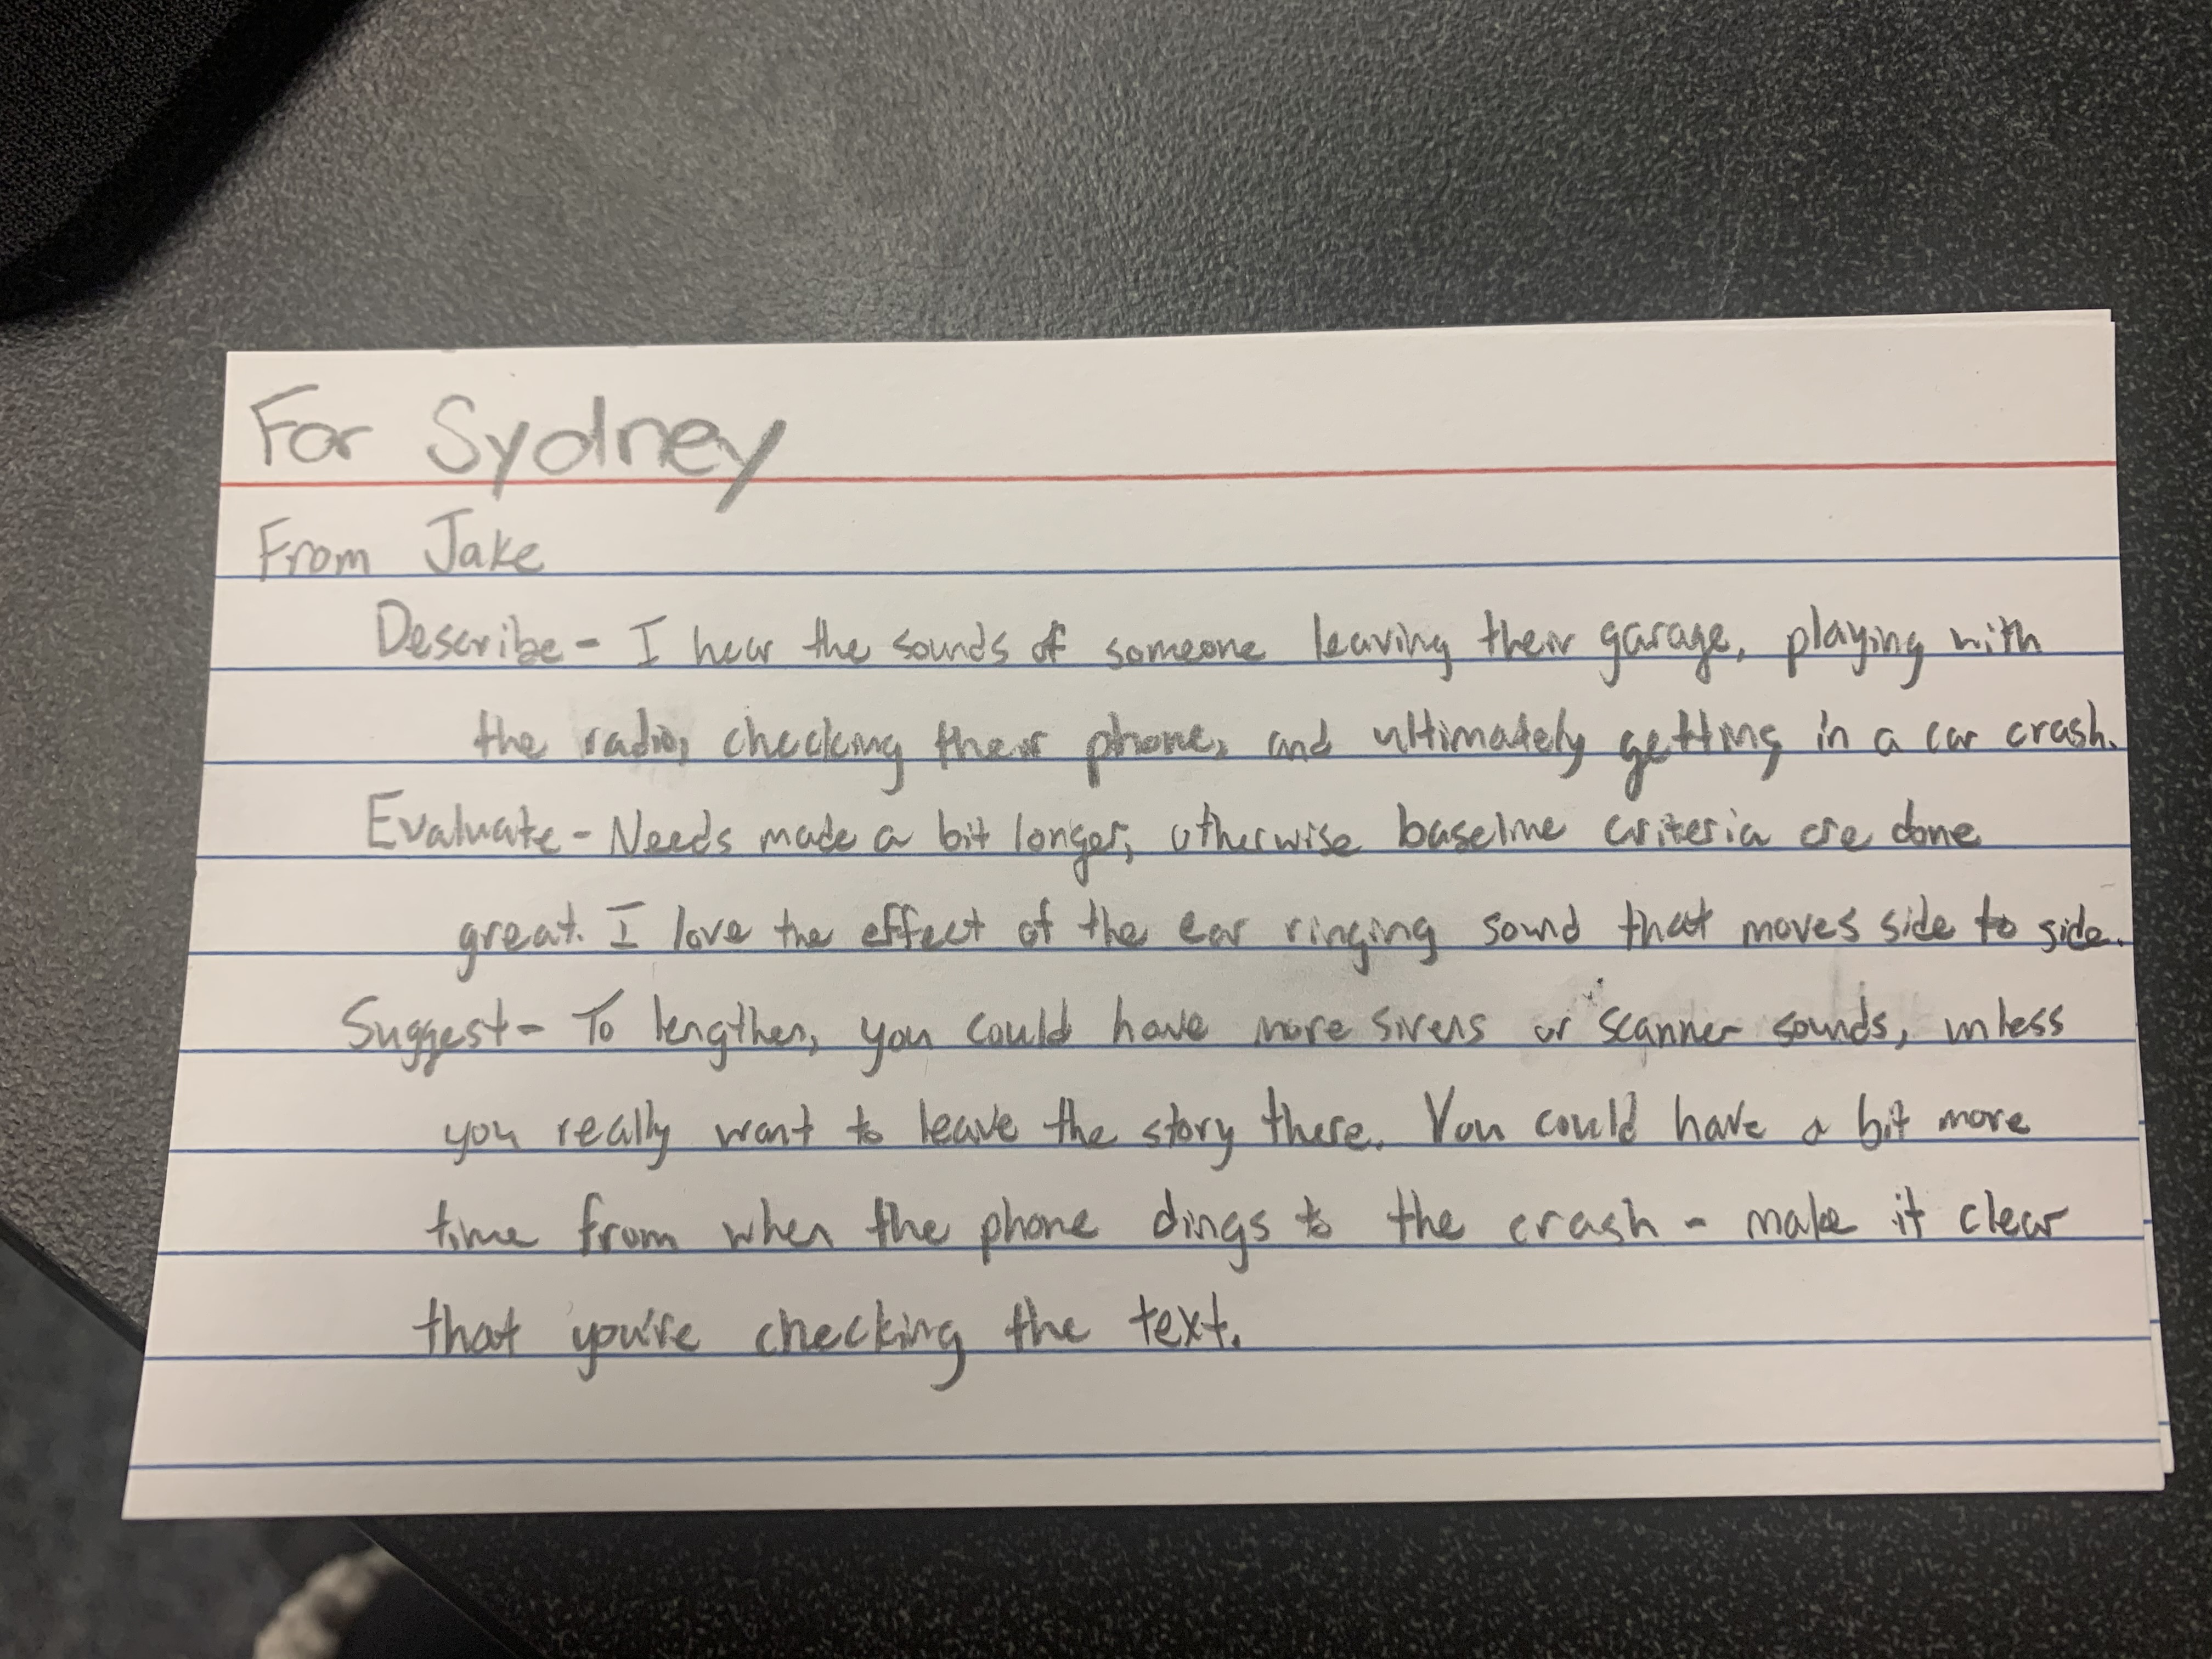 For Sydney
From Jake
Describe - I hear the sounds of someone leaving their garage, playing with
the radio, checking their phone, and ultimately getting in a car crash.
Evaluate - Needs made a bit longer, otherwise baseline criteria are done
great. I love the effect of the ear ringing sound that moves side to side.
Suggest - To lengthen, you could have more sirens or scanner sounds, unless
you really want to leave the story there. You could have a bit more
time from when the phone dings to the crash - make it clear
that you're checking the text.